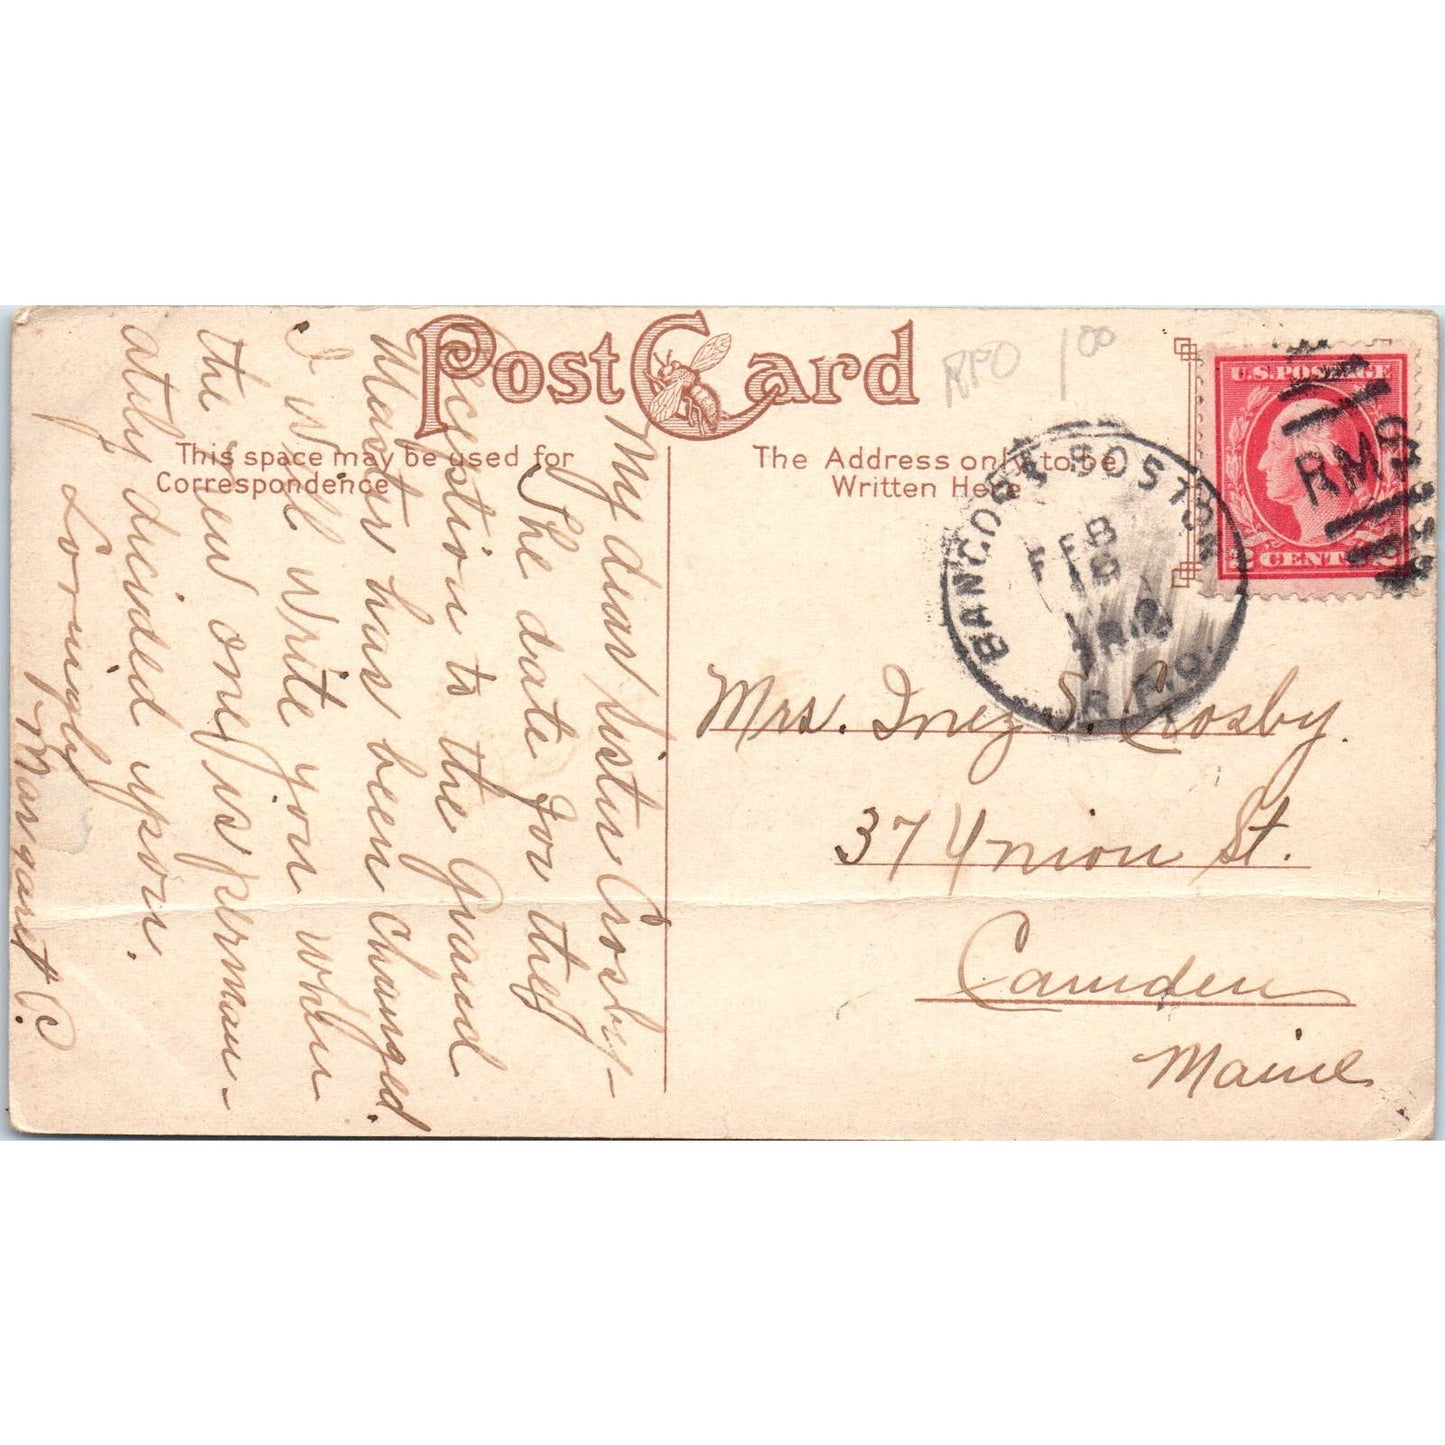 Post Card
RPO 1.00
This space may be used for
Correspondence
The Address only to be
Written Here
U.S. POSTAGE
2 CENTS 2
RMS
BANGOR & BOSTON
FEB
18
R.P.O.
My dear Sister Crosby -
The date for the
reception to the Grand
Master has been changed.
I will write you when
the new one is perman-
ately decided upon.
Lovingly
Margaret C.
Mrs. Inez S. Crosby.
37 Union St.
Camden
Maine